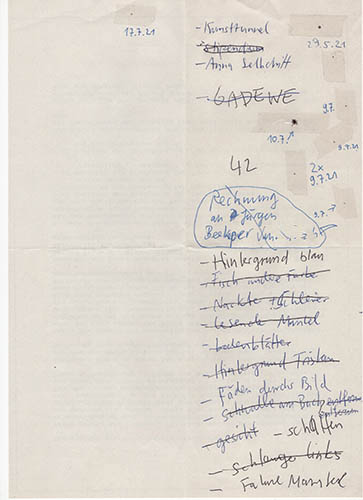 17.7.21
- Kunsttunnel
29.5.21
- Anna Selbstritt
- GADEWE
9.7.
10.7.
9.7.21
42
2x
9.7.21
Rechnung
an Jürgen
9.7.
- Hintergrund blau
- Fisch andere Farbe
- Nackte + Schleier
- Lesende Mantel
- Lodenblätter
- Hintergrund Tristan
- Fäden durchs Bild
- Schnalle am Buch entfernen
- gesicht - schaffen
- Schlange links
- Fahne